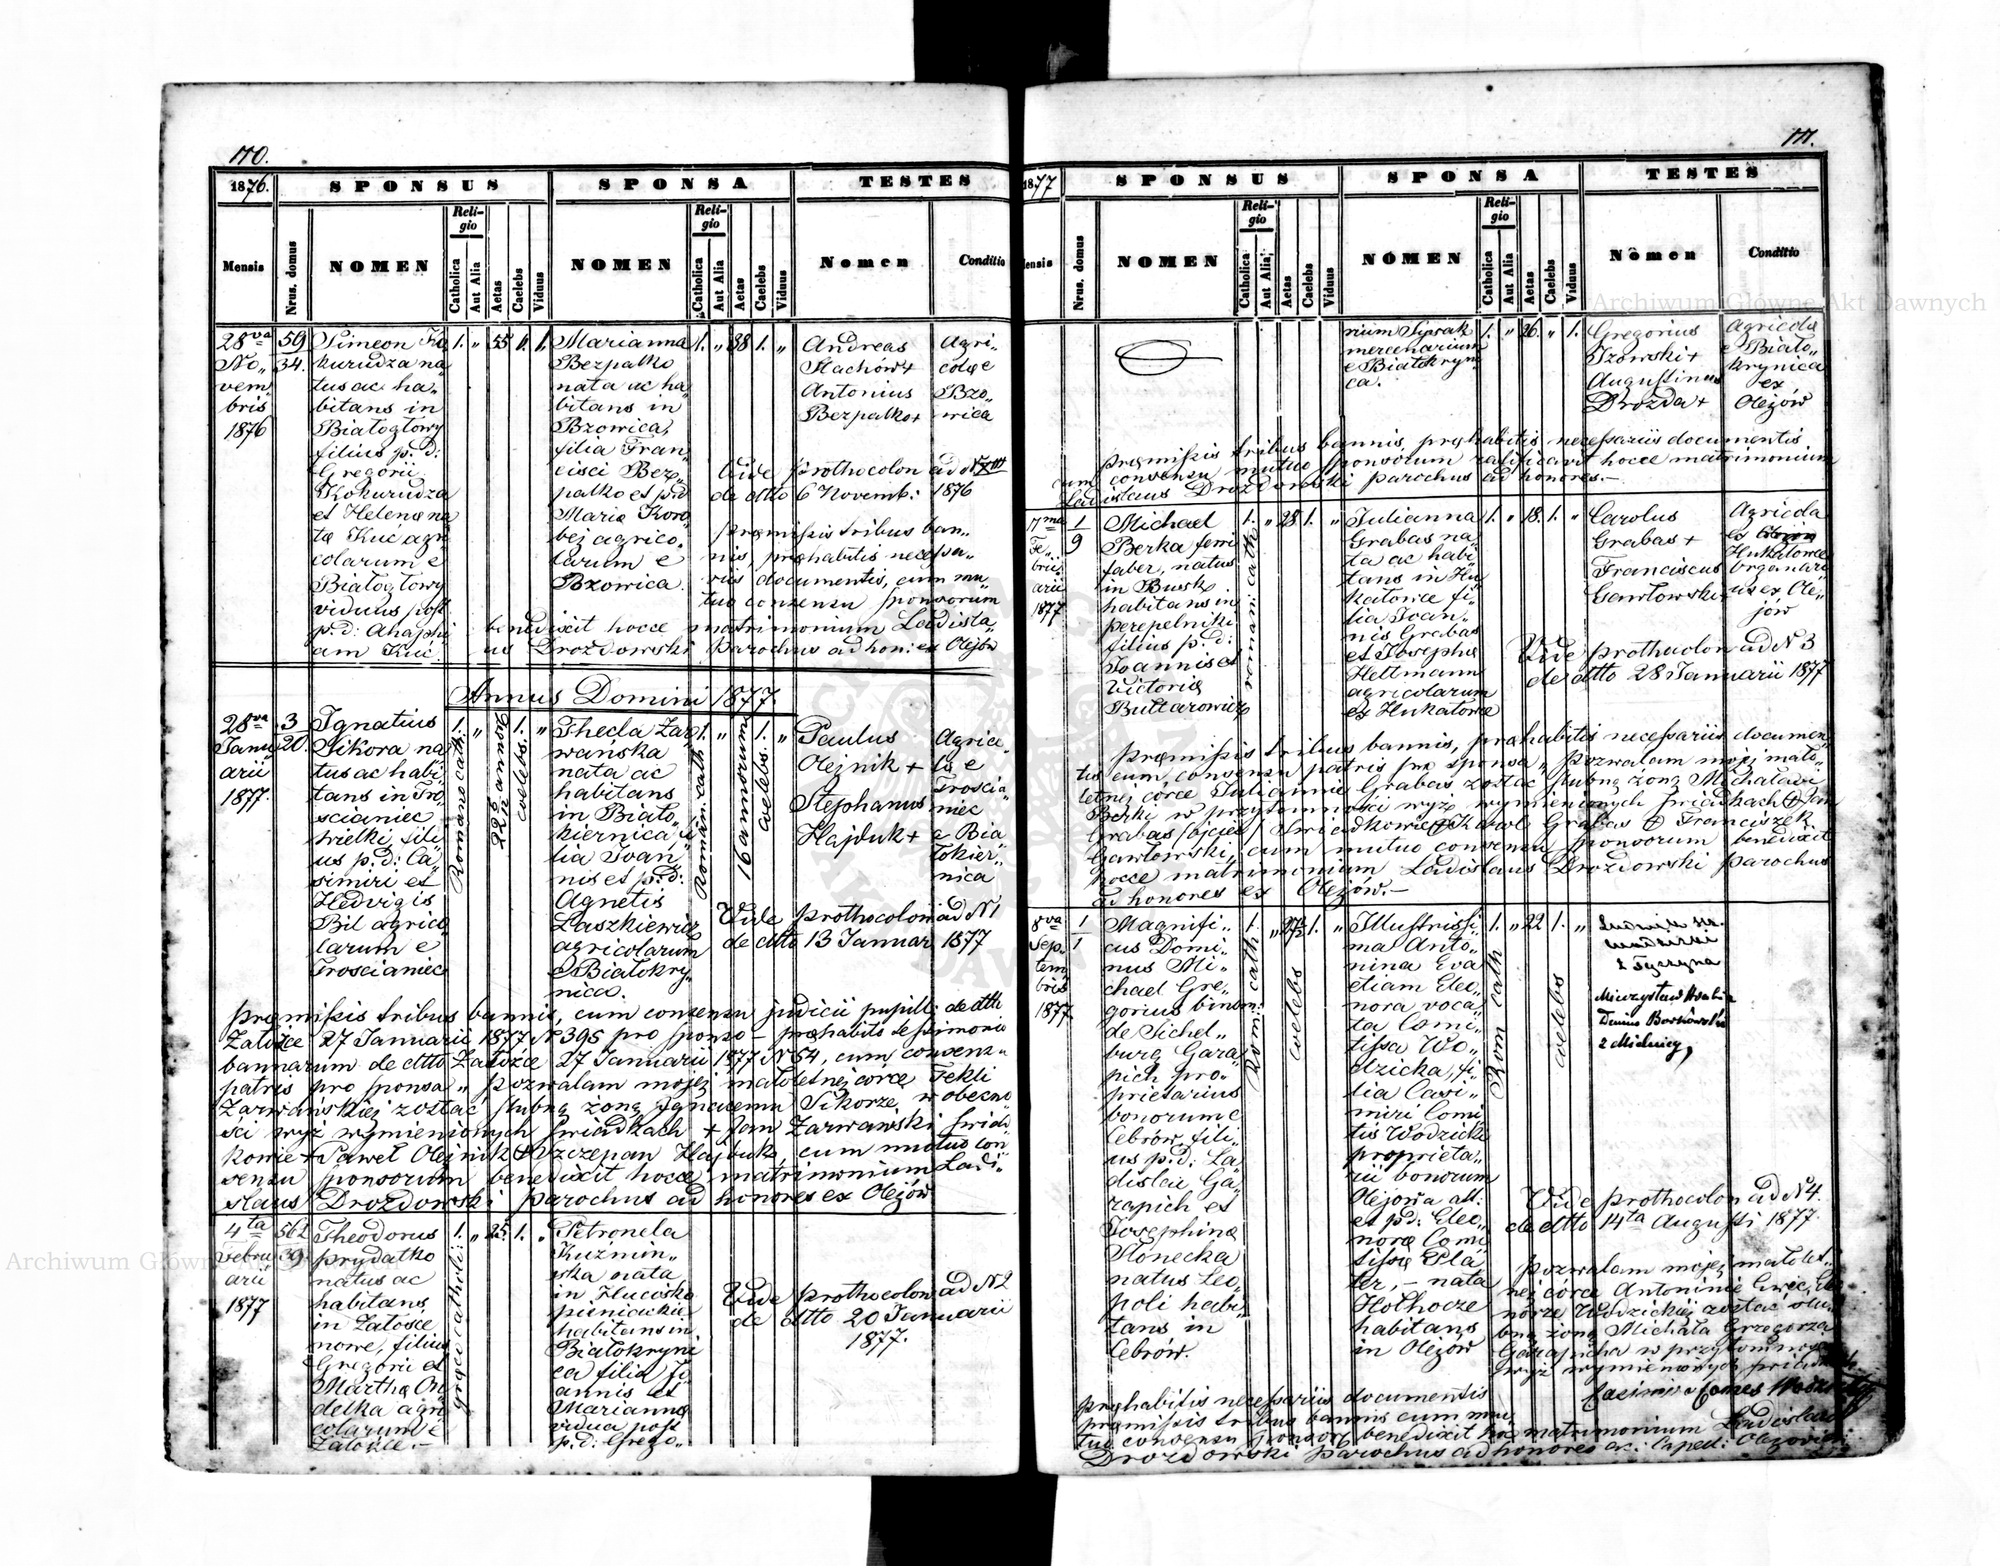 170.
1876.
SPONSUS
SPONSA
TESTES
Mensis
Nrus. domus
NOMEN
Religio
Catholica
Aut Alia
Aetas
Caelebs
Viduus
NOMEN
Religio
Catholica
Aut Alia
Aetas
Caelebs
Viduus
Nomen
Conditio
28va
No„
vem„
bris
1876
59
34.
Simeon Ko
kurudza na„
tus ac ha„
bitans in
Białogłowy
filius p. d:
Gregorii
Kokurudza
et Helenæ na
tæ Kuć agri
colarum e
Białogłowy
viduus post
p: d: Ahaphi
am Kuć.
1. „ 55 „ 1.
Marianna
Bezpalko
nata ac ha
bitans in
Bzowica,
filia Fran„
cisci Bez„
palko et p: d:
Mariæ Koro
bej agrico„
larum e
Bzowica.
1. „ 38 1. „
Andreas
Stachów +
Antonius
Bezpalko +
Agri„
colæ e
Bzo„
wica
Vide prothocolon ad N XIII
de dtto 6 Novemb: 1876
Præmissis tribus ban„
nis, præhabitis necessa„
riis documentis, cum mu„
tuo consensu sponsorum
benedixit hocce matrimonium Ladisla„
us Drozdowski Parochus ad hon: ex Olejów
Annus Domini 1877.
28va
Janu
arii
1877.
3
20.
Ignatius
Sikora na„
tus ac habi„
tans in Tro„
scianiec
wielki, fili„
us p. d: Ca„
simiri et
Hedvigis
Bil agrico„
larum e
Troscianiec
1. „ 1. „
Romano cath:
22½ annos
coelebs.
Thecla Zar
wańska
nata ac
habitans
in Biało„
kiernica, fi
lia Joan„
nis et p: d:
Agnetis
Laszkiewicz
agricolarum
e Białokry„
nica.
1. „ 1. „
Román. cath
16 annorum
coelebs.
Paulus
Olejnik +
Stephanus
Hajduk +
Agrico„
la e
Troscia„
niec
e Bia
łokier„
nica
Vide prothocolon ad N 1
de dtto 13 Januar 1877
Præmissis tribus bannis, cum consensu judicii pupill: de dtto
Załoźce 27 Januarii 1877 N 395 pro sponso – præhabito testimonio
bannorum de dtto Załoźce 27 Januarii 1877 N 54, cum consens„
patris pro sponsa „ pozwalam mojej małoletnej córce Tekli
Zarwańskiej zostać ślubną żoną Ignacemu Sikorze, w obecno„
sci wyż wymienionych świadkach + Jan Zarwański świad„
kowie + Paweł Olejnik + Szczepan Hajduk, cum mutuo con„
sensu sponsorum benedixit hocce matrimonium Ladi„
slaus Drozdowski parochus ad honores ex Olejów
4ta
Febru
arii
1877
562
39.
Theodorus
Prydatko
natus ac
habitans
in Załosce
nowe, filius
Gregorii et
Marthæ On
delka agri
colarum e
Załoźce. –
1. „ 25. 1. „
græci catholi:
Petronela
Kuźmin„
ska nata
in Hucisko
pieniackie
habitans in
Białokryni
ca filia Jo
annis et
Marianna
vidua post
p: d: Grego„
Vide prothocolon ad N 2
de dtto 20 Januarii
1877.
171.
1877
SPONSUS
SPONSA
TESTES
Mensis
Nrus. domus
NOMEN
Religio
Catholica
Aut Alia
Aetas
Caelebs
Viduus
NOMEN
Religio
Catholica
Aut Alia
Aetas
Caelebs
Viduus
Nomen
Conditio
rium Spivak
mercenarium
e Białokryni
ca.
1. „ 26. „ 1.
Gregorius
Izowski +
Augustinus
Drozda +
Agricola
e Biało„
krynica
ex
Olejów
Præmissis tribus bannis, præhabitis necessariis documentis
cum consensu mutuo sponsorum ratificavit hocce matrimonium
Ladislaus Drozdowski parochus ad honores. –
17ma
Fe„
bru„
arii
1877
1
9
Michael
Berka ferri
faber, natus
in Busk
habitans in
Perepelniki
filius p: d:
Joannis et
Victoriæ
Buttarowicz
1. „ 28 1. „
romani cath
Julianna
Grabas na„
ta ac habi
tans in Hu
kałowce fi„
lia Joan„
nis Grabas
et Josepha
Hellmann
agricolarum
ex Hukałowce
1. „ 18. 1. „
Carolus
Grabas +
Franciscus
Gawłowski +
Agricola
ex
Hukałowce
Organari
us ex Ole„
jów
Vide prothocolon ad N 3
de dtto 28 Januarii 1877
Præmissis tribus bannis, præhabitis necessariis documen„
tis cum consensu patris pro sponsa „ Pozwalam mojej mało„
letnej córce Juliannie Grabas zostac ślubną żoną Michałowi
Berki w przytomności wyż wymienionych świadkach + Jan
Grabas /ojciec/ Swiadkowie + Karol Grabas + Franciszek
Gawłowski, cum mutuo consensu sponsorum benedixit
hocce matrimonium Ladislaus Drozdowski parochus
ad honores ex Olejów. –
8va
Sep„
tem
bris
1877
1
1
Magnifi„
cus Domi„
nus Mi„
chael Gre„
gorius binom:
de Sichel„
burg Gara
pich pro„
prietarius
bonorum e
Cebrów, fili„
us p: d: La„
dislai Ga„
rapich et
Josephinæ
Słonecka
natus Leo„
poli habi„
tans in
Cebrów.
1. „ 27½ 1. „
Rom: cath
coelebs
Illustrissi„
ma Anto„
nina Eva
etiam Eleo„
nora voca„
ta Comi„
tissa Wo„
dzicka, fi„
lia Casi„
miri Comi
tis Wodzicki
proprieta„
rii bonorum
Olejowa att:
et p: d: Eleo„
noræ Comi
tissæ Plà
ter, – nata
Hołhocze
habitans
in Olejów
1. „ 22 1. „
Rom cath
coelebs
z Tyczyna
Mieczysław Hrabia
Dunin Borkowski
z Mielnicy,
Vide prothocolon ad N 4.
de dtto 14ta Augusti 1877.
Pozwalam mojej małolet„
nej córce Antoninie Ewie, Eleo„
norze Wodzickiej zostać ślu„
bną żoną Michała Grzegorza
Garapicha w przytomnosci
wyż wymienionych swiadkach.
Casimir Comes Wodzicki
Præhabitis necessariis documentis
præmissis tribus bannis cum mu„
tuo consensu sponsor: benedixit hoc matrimonium Ladislaus
Drozdowski Parochus ad honores ac: Exped: Olejoviensis
Archiwum Główne Akt Dawnych
Archiwum Główne Akt Dawnych